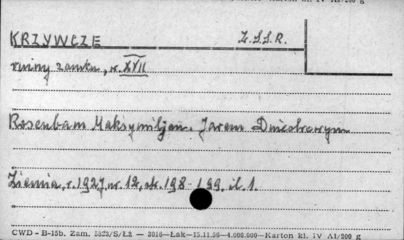 KRZYWCZE Z.S.S.R.
ruiny zamku, w. XVII
Rosenbam Maksymiljan. Jarem Dniestrowym
Ziemia, r. 1927, nr. 12, str. 198-199, il. 1.
CWD - B-15b. Zam. — Łak—15.11.56—4.000.000—Karton kl. IV A1/200 g